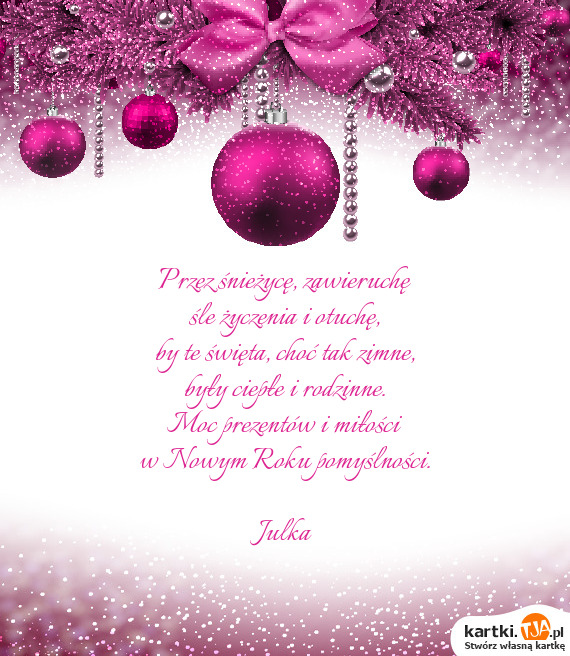 Przez śnieżycę, zawieruchę
śle życzenia i otuchę,
by te święta, choć tak zimne,
były ciepłe i rodzinne.
Moc prezentów i miłości
w Nowym Roku pomyślności.
Julka
kartki.TJA.pl
Stwórz własną kartkę